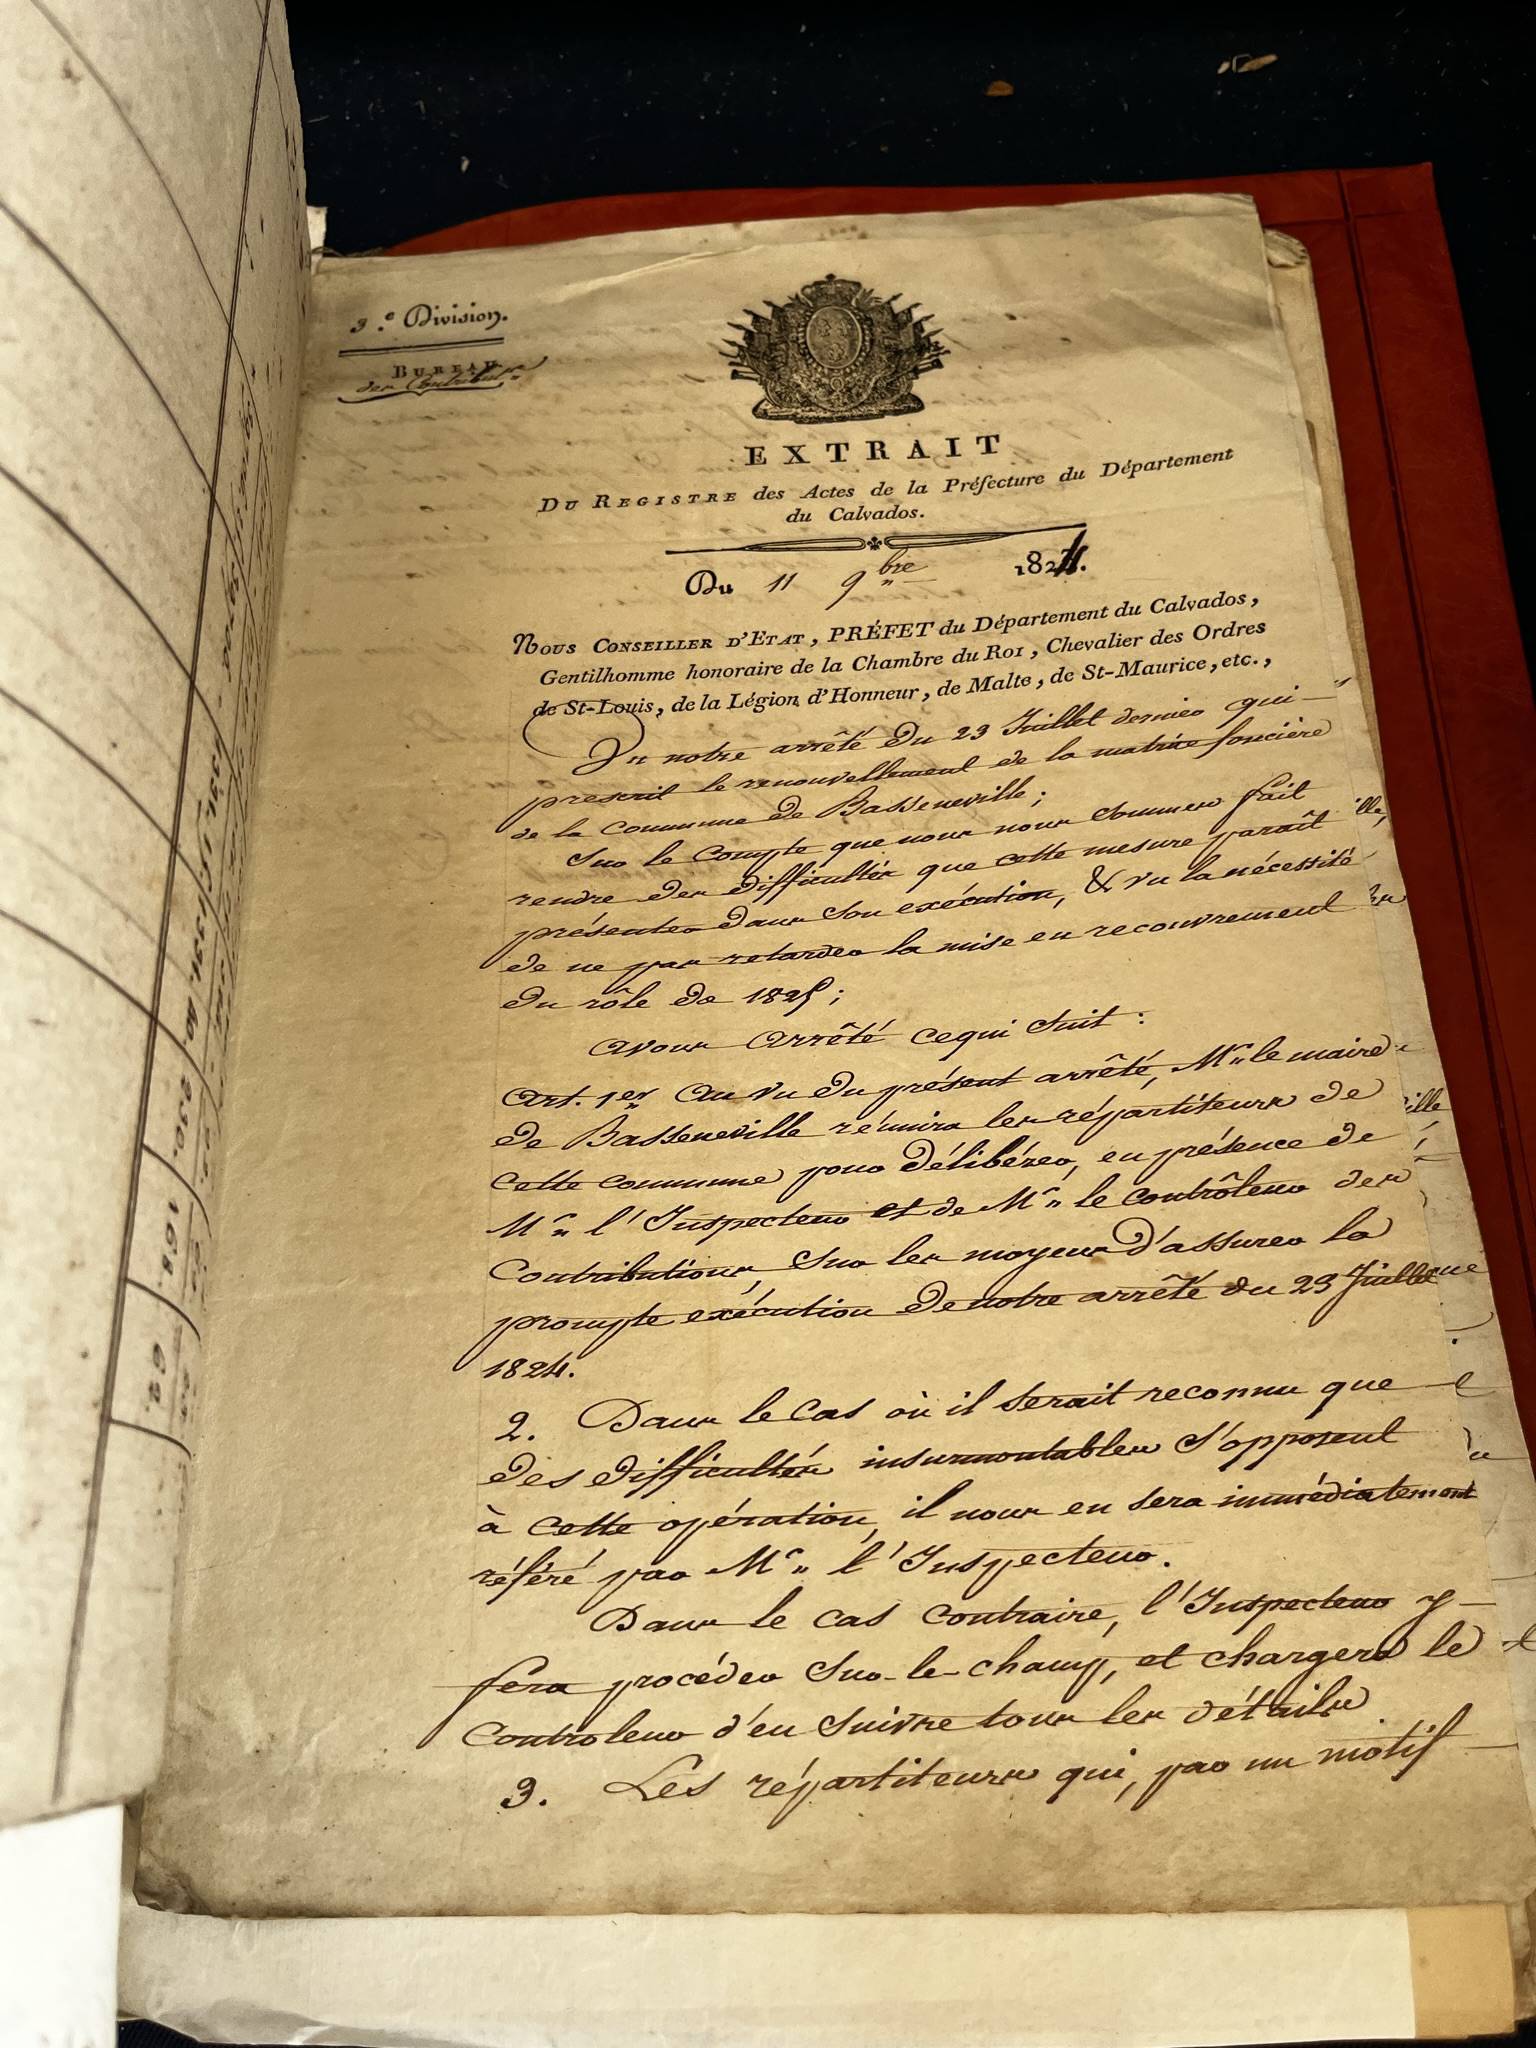 3.e Division.
BUREAU
des Contributns
EXTRAIT
DU REGISTRE des Actes de la Préfecture du Département
du Calvados.
Du 11 9bre 1824.
NOUS CONSEILLER D'ETAT, PRÉFET du Département du Calvados,
Gentilhomme honoraire de la Chambre du ROI, Chevalier des Ordres
de St-Louis, de la Légion d'Honneur, de Malte, de St-Maurice, etc.,
Vu notre arrêté du 23 Juillet dernier qui
prescrit le renouvellement de la matrice foncière
de la Commune de Basseneville;
Sur le Compte que nous nous sommes fait
rendre des difficultés que cette mesure paraît
présenter dans son exécution, & vu la nécessité
de ne pas retarder la mise en recouvrement
du rôle de 1825;
avons arrêté ce qui suit:
Art. 1er Au vu du présent arrêté, Mr le maire
de Basseneville réunira les répartiteurs de
cette commune pour délibérer, en présence de
Mr l'Inspecteur et de Mr le contrôleur des
Contributions, sur les moyens d'assurer la
prompte exécution de notre arrêté du 23 Juillet
1824.
2. Dans le cas où il serait reconnu que
des difficultés insurmontables s'opposent
à cette opération, il nous en sera immédiatement
référé par Mr l'Inspecteur.
Dans le cas contraire, l'Inspecteur y
fera procéder sur-le-champ, et chargera le
Controleur d'en suivre tous les détails.
3. Les répartiteurs qui, par un motif
1331.40.
230.
168.
62.